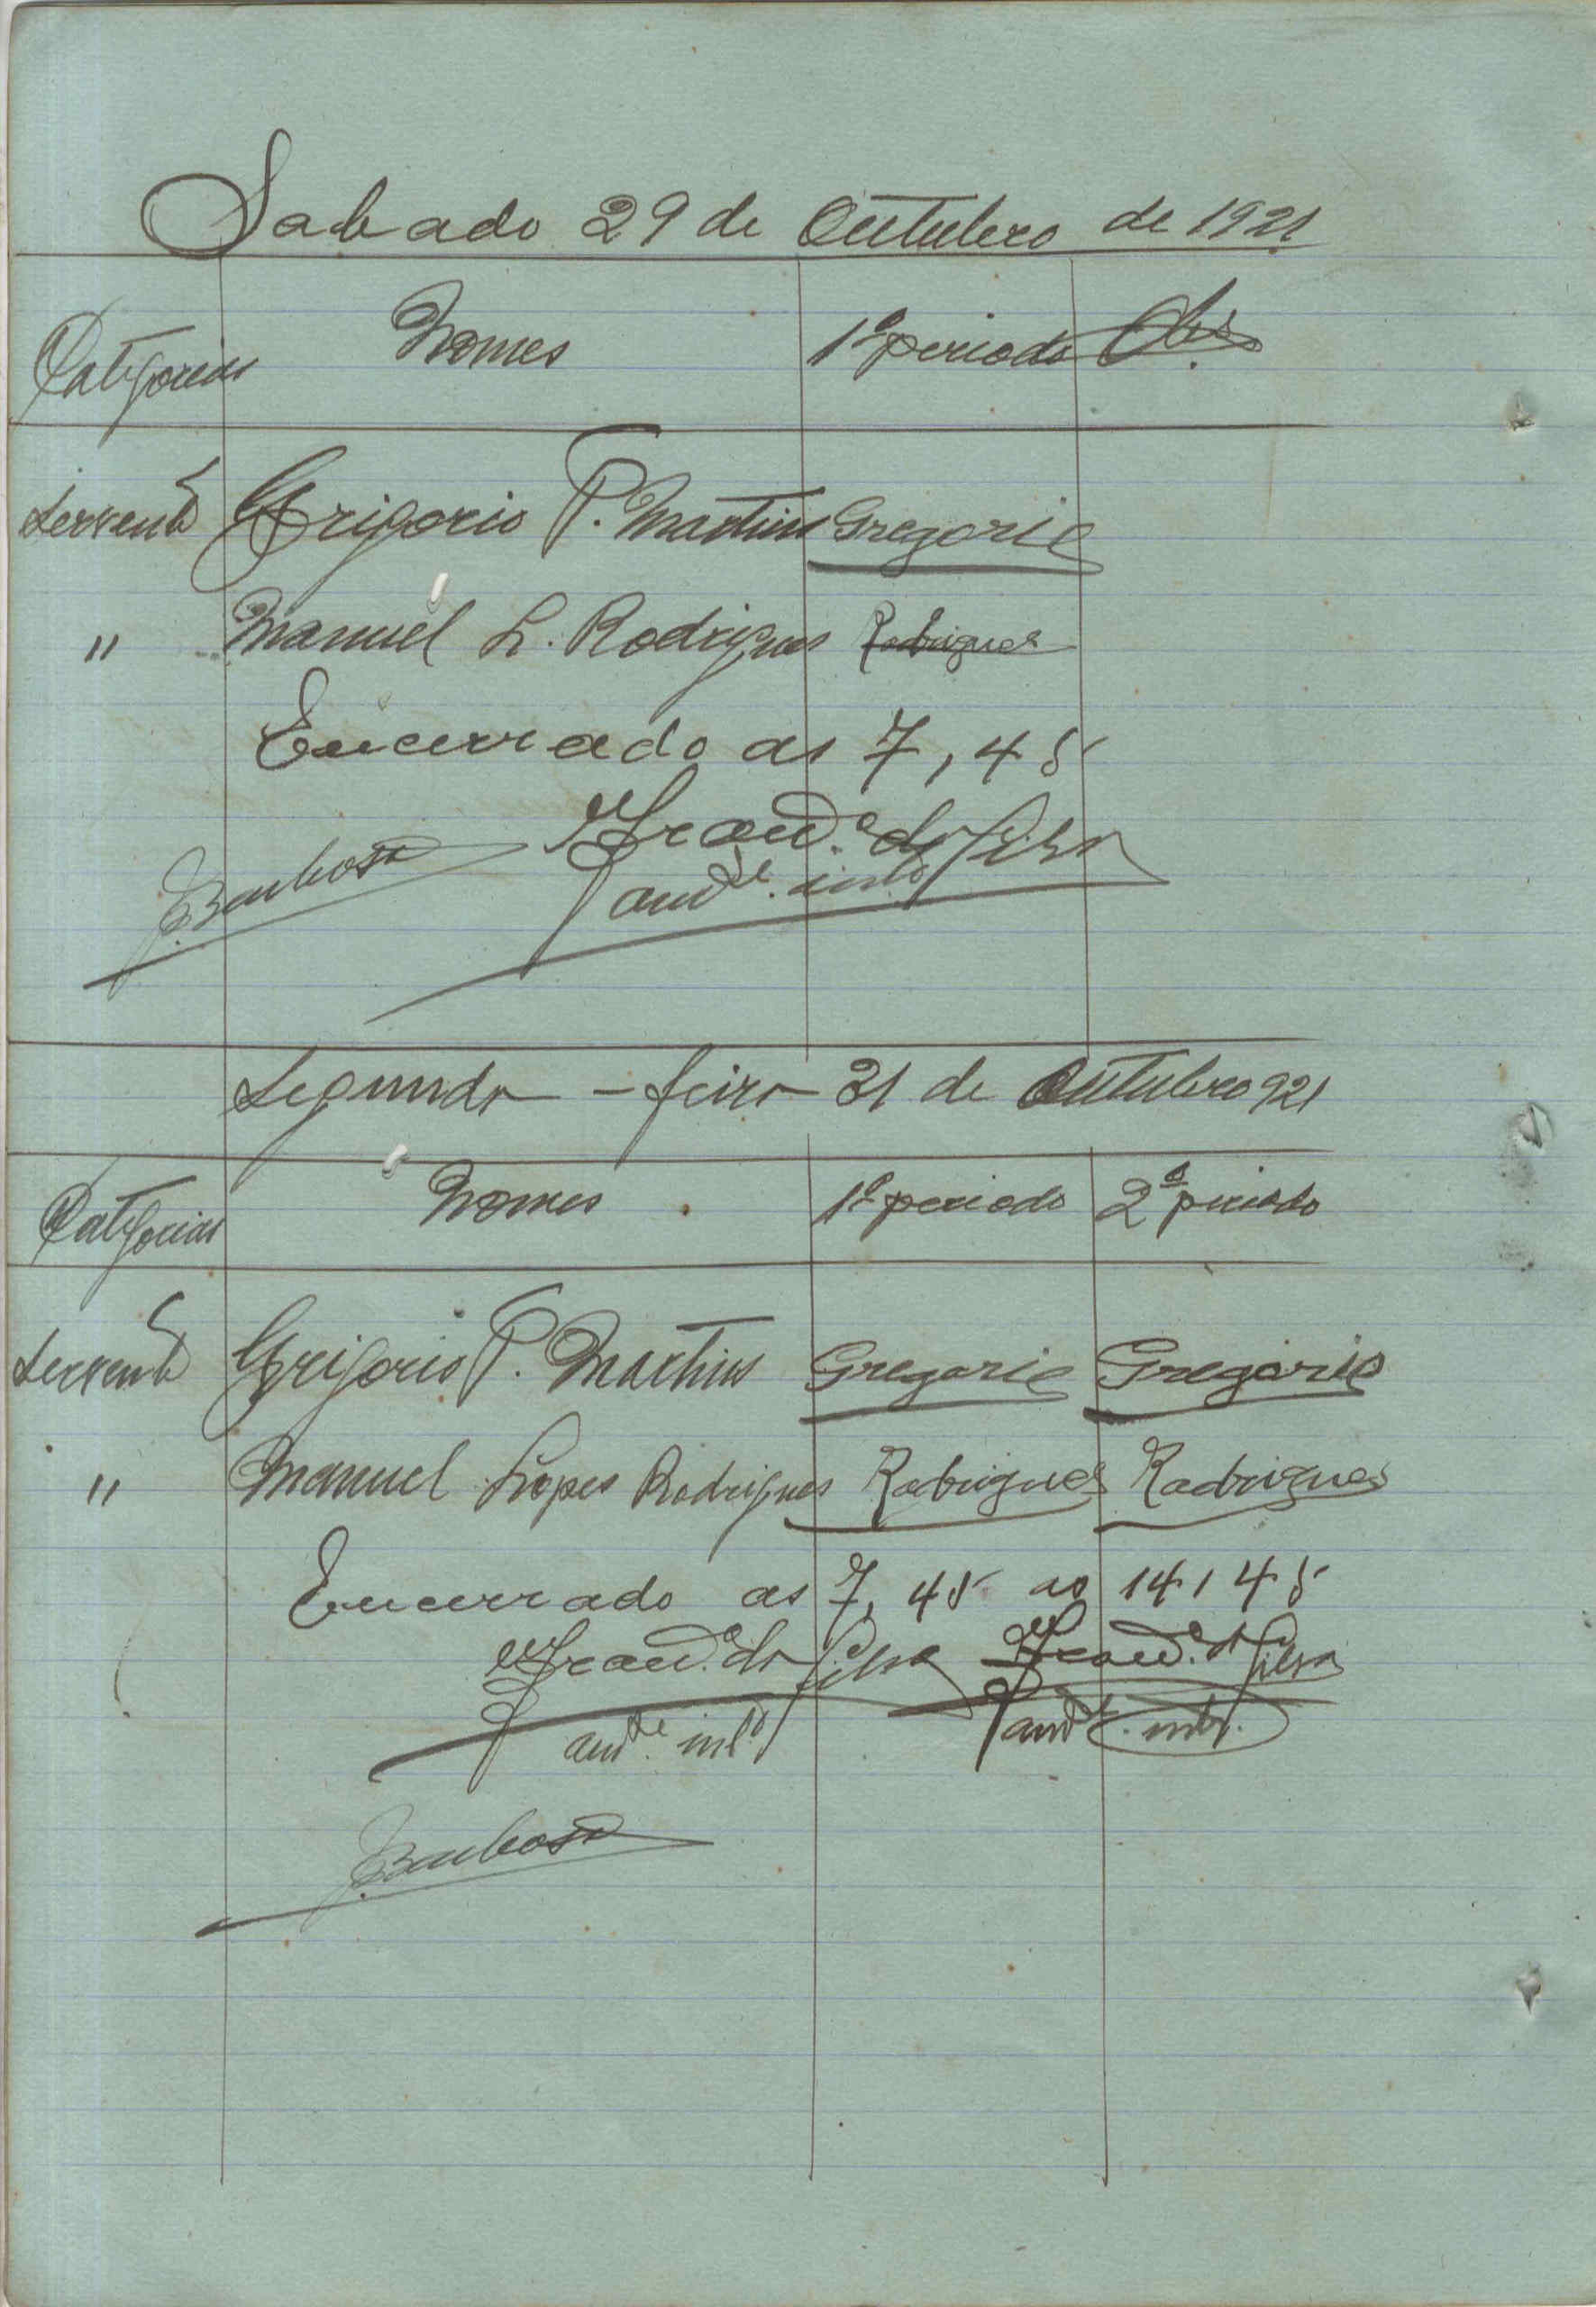 Sabado 29 de Outubro de 1921
Categorias Nomes 1º periodo Obs.
Servente Grigorio P. Martins Gregorio
" Manuel L. Rodrigues Rodrigues
Encerrado as 7,45
Franc.º da Silva
Barbosa
Segunda-feira 31 de Outubro 921
Categorias Nomes 1º periodo 2º periodo
Servente Grigorio P. Martins Gregorio Gregorio
" Manuel Lopes Rodrigues Rodrigues Rodrigues
Encerrado as 7,45 as 14,45
Franc.º da Silva Franc.º da Silva
Barbosa